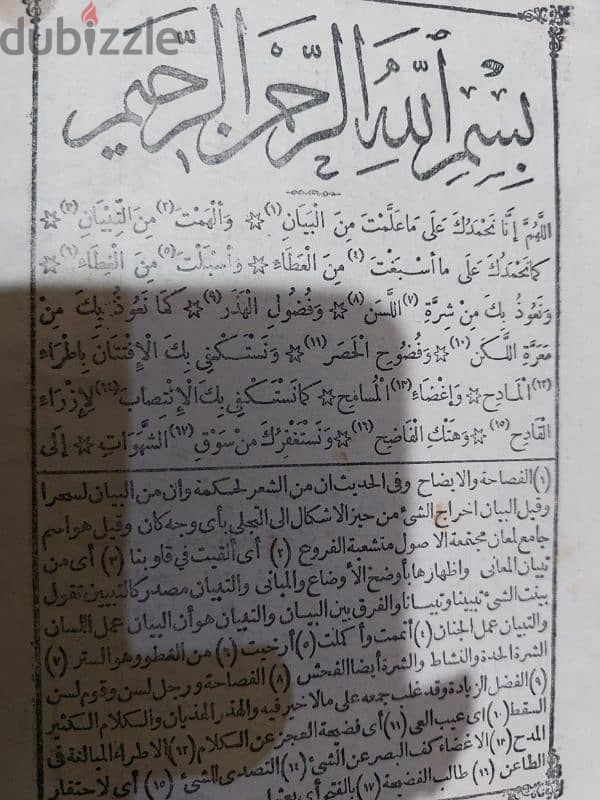 dubizzle
بِسْمِ اللهِ الرَّحْمٰنِ الرَّحِيمِ
اللّٰهُمَّ إِنَّا نَحْمَدُكَ عَلَى مَا عَلَّمْتَ مِنَ الْبَيَانِ (١) ☆ وَأَلْهَمْتَ (٢) مِنَ التِّبْيَانِ (٣) ☆
كَمَا نَحْمَدُكَ عَلَى مَا أَسْبَغْتَ (٤) مِنَ الْعَطَاءِ ☆ وَأَسْبَلْتَ (٥) مِنَ الْغِطَاءِ (٦) ☆
وَنَعُوذُ بِكَ مِنْ شِرَّةِ (٧) اللَّسَنِ (٨) ☆ وَفُضُولِ الْهَذَرِ (٩) ☆ كَمَا نَعُوذُ بِكَ مِنْ
مَعَرَّةِ اللَّكَنِ (١٠) ☆ وَفُضُوحِ الْحَصَرِ (١١) ☆ وَنَسْتَكْفِي بِكَ الْاِفْتِتَانَ بِاِطْرَاءِ
(١٢) الْمَادِحِ ☆ وَإِغْضَاءِ (١٣) الْمُسَامِحِ ☆ كَمَا نَسْتَكْفِي بِكَ الْاِنْتِصَابَ (١٤) لِإِزْرَاءِ
الْقَادِحِ (١٥) ☆ وَهَتْكِ الْفَاضِحِ (١٦) ☆ وَنَسْتَغْفِرُكَ مِنْ سَوْقِ (١٧) الشَّهَوَاتِ ☆ إِلَى
(١) الفصاحة والايضاح وفى الحديث ان من الشعر لحكمة وان من البيان لسحرا
وقيل البيان اخراج الشئ من حيز الاشكال الى التجلى بأى وجه كان وقيل هو اسم
جامع لمعان مجتمعة الاصول متشعبة الفروع (٢) أى ألقيت فى قلوبنا (٣) أى من
تبيان المعانى واظهارها بأوضح الأوضاع والمبانى والتبيان مصدر كالتبيين تقول
بينت الشئ تبيينا وتبيانا والفرق بين البيان والتبيان هو أن البيان عمل اللسان
والتبيان عمل الجنان (٤) أتممت وأكملت (٥) أرخيت (٦) من الغطو وهو الستر (٧)
الشرة الحدة والنشاط والشرة أيضا الفحش (٨) الفصاحة ورجل لسن وقوم لسن
(٩) الفضل الزيادة وقد غلب جمعه على مالا خير فيه والهذر الهذيان والكلام الكثير
السقط (١٠) أى عيب العى (١١) أى فضيحة العجز عن الكلام (١٢) الاطراء المبالغة فى
المدح (١٣) الاغضاء كف البصر عن الشئ (١٤) التصدى للشئ (١٥) أى لاحتقار
الطاعن (١٦) طالب الفضيحة (١٧) بالفتح أى